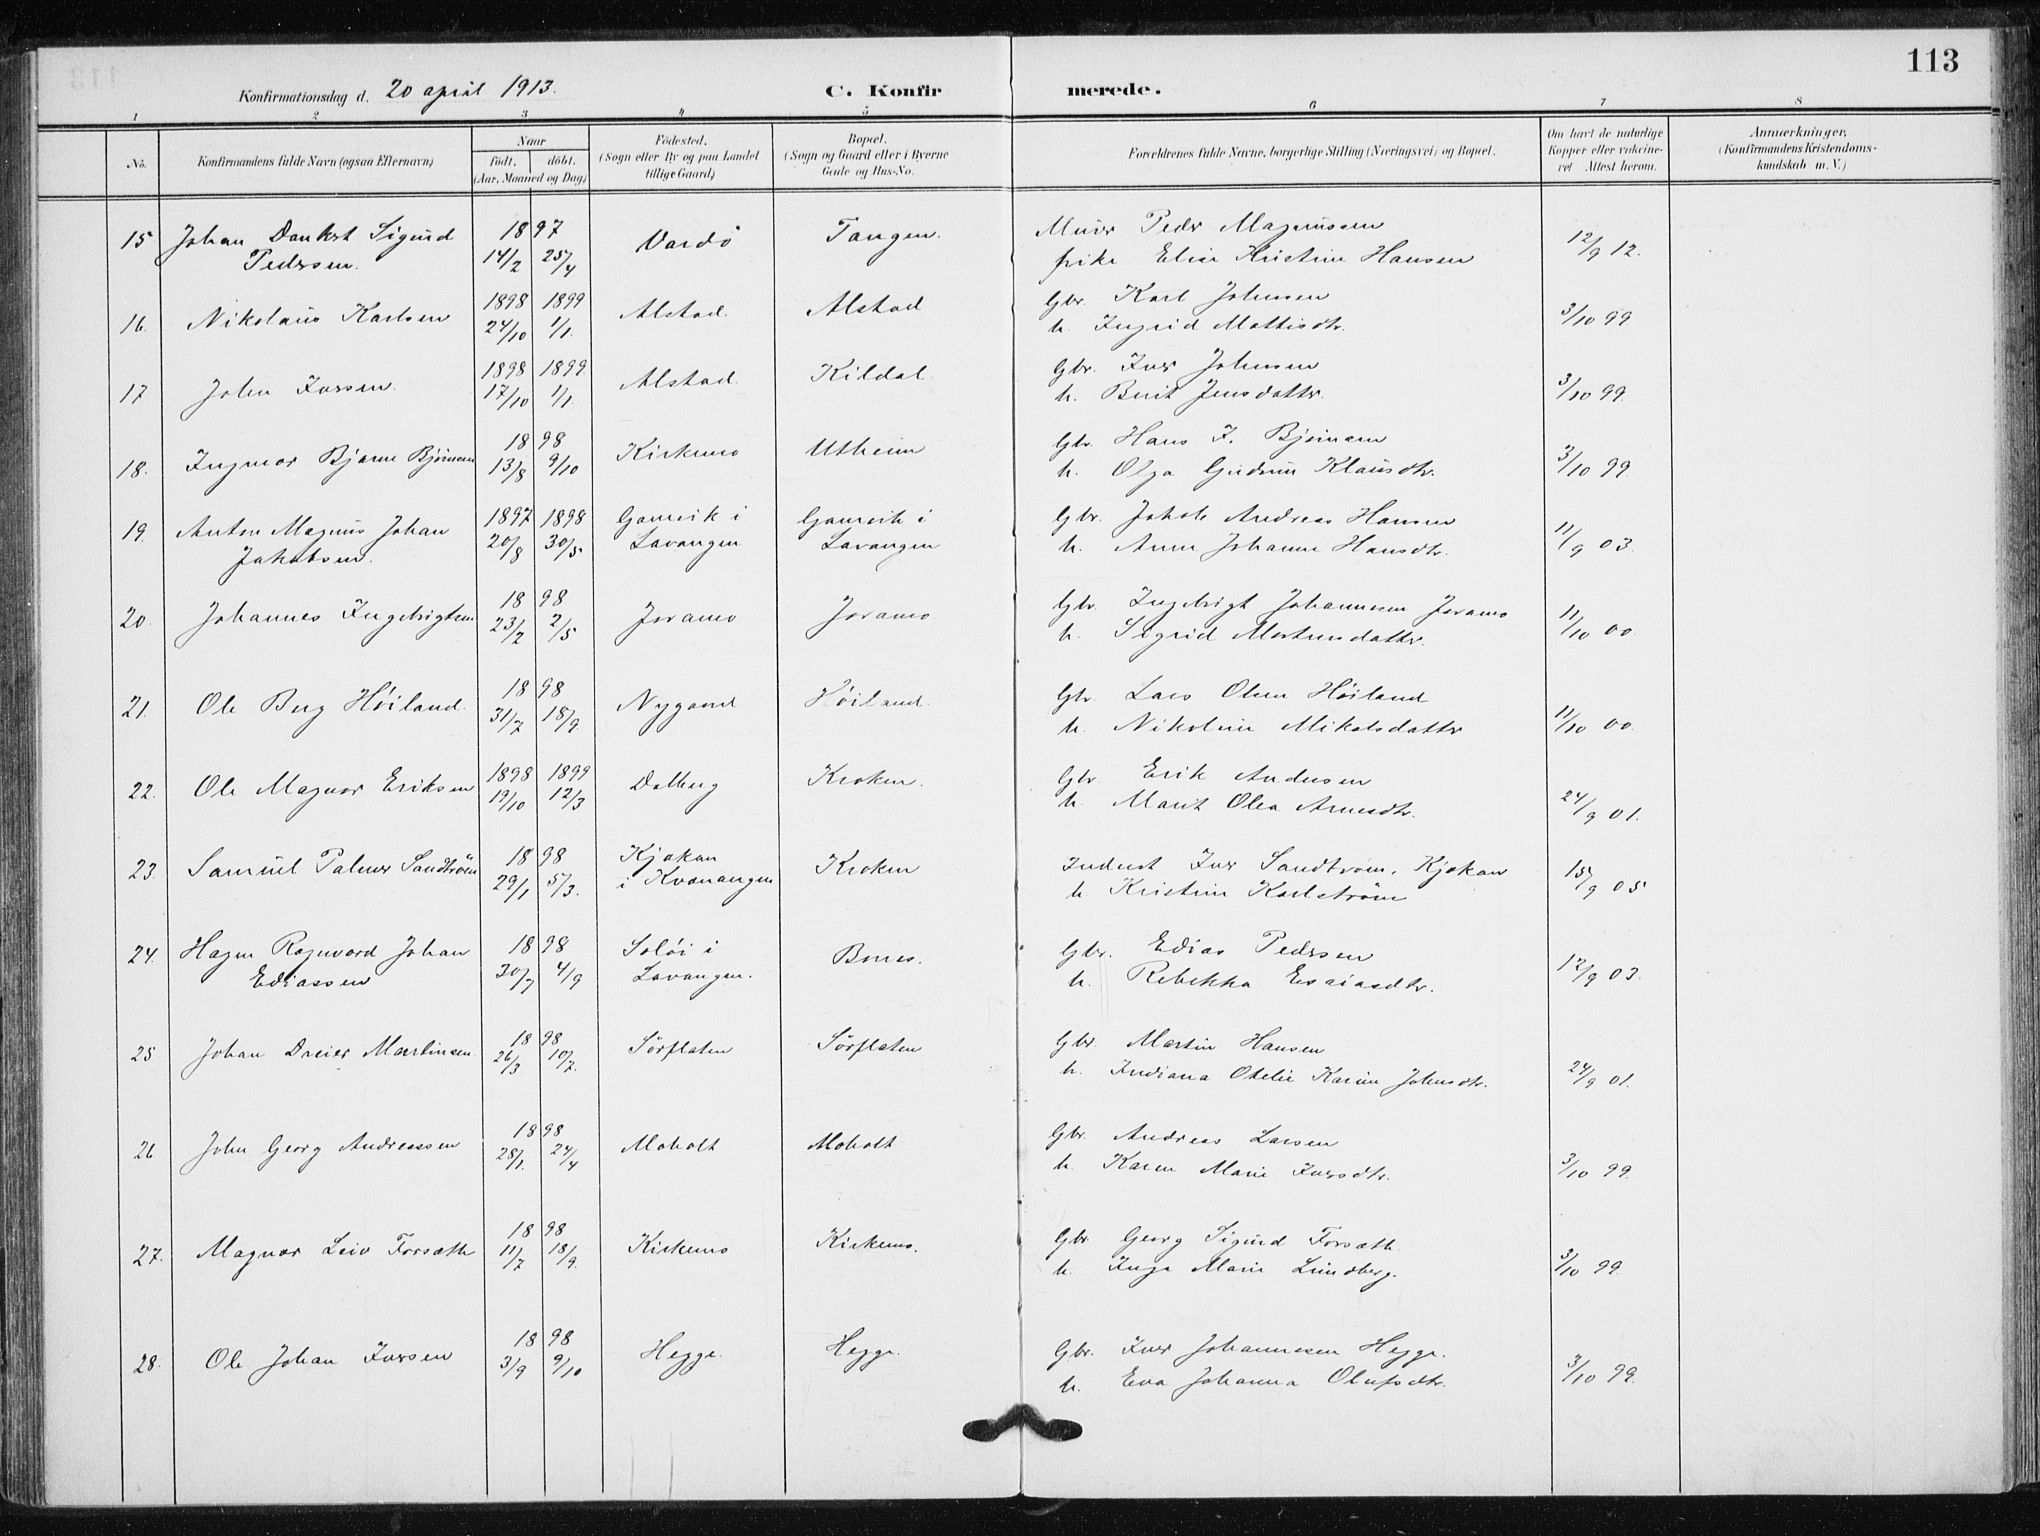 113
Konfirmationsdag d. 20 april 1913. C. Konfirmerede.
1 2 3 4 5 6 7 8
No. Konfirmandens fulde Navn (ogsaa Efternavn) Naar født, døbt. (Aar, Maaned og Dag) Fødested. (Sogn eller By og paa Landet tillige Gaard) Bopæl. (Sogn og Gaard eller i Byerne Gade og Hus-No. Forældrenes fulde Navne, borgerlige Stilling (Næringsvei) og Bopæl. Om havt de naturlige Kopper eller vakcineret Attest herom. Anmærkninger, (Konfirmandens Kristendomskundskab m. V.)
15 Johan Dankert Sigurd 1897 Vardö Tangen. Murer Peder Magnussen 12/9 12.
Pedersen. 14/2 25/4 pike Elise Kristine Hansen
16. Nikolaus Karlsen 1898 1899 Alstad. Alstad Gbr. Karl Johnsen 3/10 99
24/10 1/1. h. Ingrid Mattisdtr.
17 John Iversen. 1898 1899. Alstad. Kildal. Gbr. Iver Johnsen 3/10 99.
17/10 1/1. h. Berit Jensdatter.
18. Ingmar Bjarne Björnsen 1898 Kirkemo Utheim Gbr. Hans J. Björnsen 3/10 99.
13/8 9/10 h. Olga Gudrun Klausdtr.
19. Anton Magnus Johan 1897 1898 Gamvik i Gamvik i Gbr. Jakob Andreas Hansen 11/9 03.
Jakobsen. 20/8 30/5 Lavangen Lavangen h. Anne Johanne Hansdtr.
20. Johannes Ingebrigtsen 1898 Joramo Joramo. Gbr. Ingebrigt Johannesen Joramo 11/10 00.
23/2 2/5 h. Sigrid Mortensdatter.
21. Ole Berg Höiland. 1898 Nygaard Höiland. Gbr. Lars Olsen Höiland 11/10 00.
31/7 18/9. h. Nikoline Mikalsdatter
22. Ole Magnar Eriksen 1898 1899 Dalberg Kroken. Gbr. Erik Andersen 24/9 01.
19/10 12/3 h. Marit Olea Arnesdtr.
23. Samuel Palmer Sandtröm 1898 Kjækan Kroken Indust Iver Sandtröm, Kjækan 15/9 05
29/1 5/3. i Kvænangen h Kristine Karlström
24. Hagen Ragnvard Johan 1898 Solöi i Bones. Gbr. Edias Pedersen 12/9 03.
Ediassen 30/7 4/9 Lavangen. h. Rebekka Esaiasdtr.
25 Johan Dreier Martinsen. 1898 Sörflaten Sörflaten Gbr. Martin Hansen 24/9 01.
26/3 10/7. h. Indiana Otelie Karine Johnsdtr.
26 John Georg Andreassen 1898 Moholt Moholt Gbr. Andreas Larsen 3/10 99.
28/1. 24/4 h. Karen Marie Iversdtr.
27. Magnar Leiv Forsæth 1898 Kirkemo Kirkemo. Gbr. Georg Sigurd Forsæth. 3/10 99.
11/7 18/9. h. Inga Marie Lundberg.
28. Ole Johan Iversen 1898 Hegge. Hegge. Gbr. Iver Johannesen Hegge. 3/10 99.
3/9 9/10 h. Eva Johanna Olufsdtr.